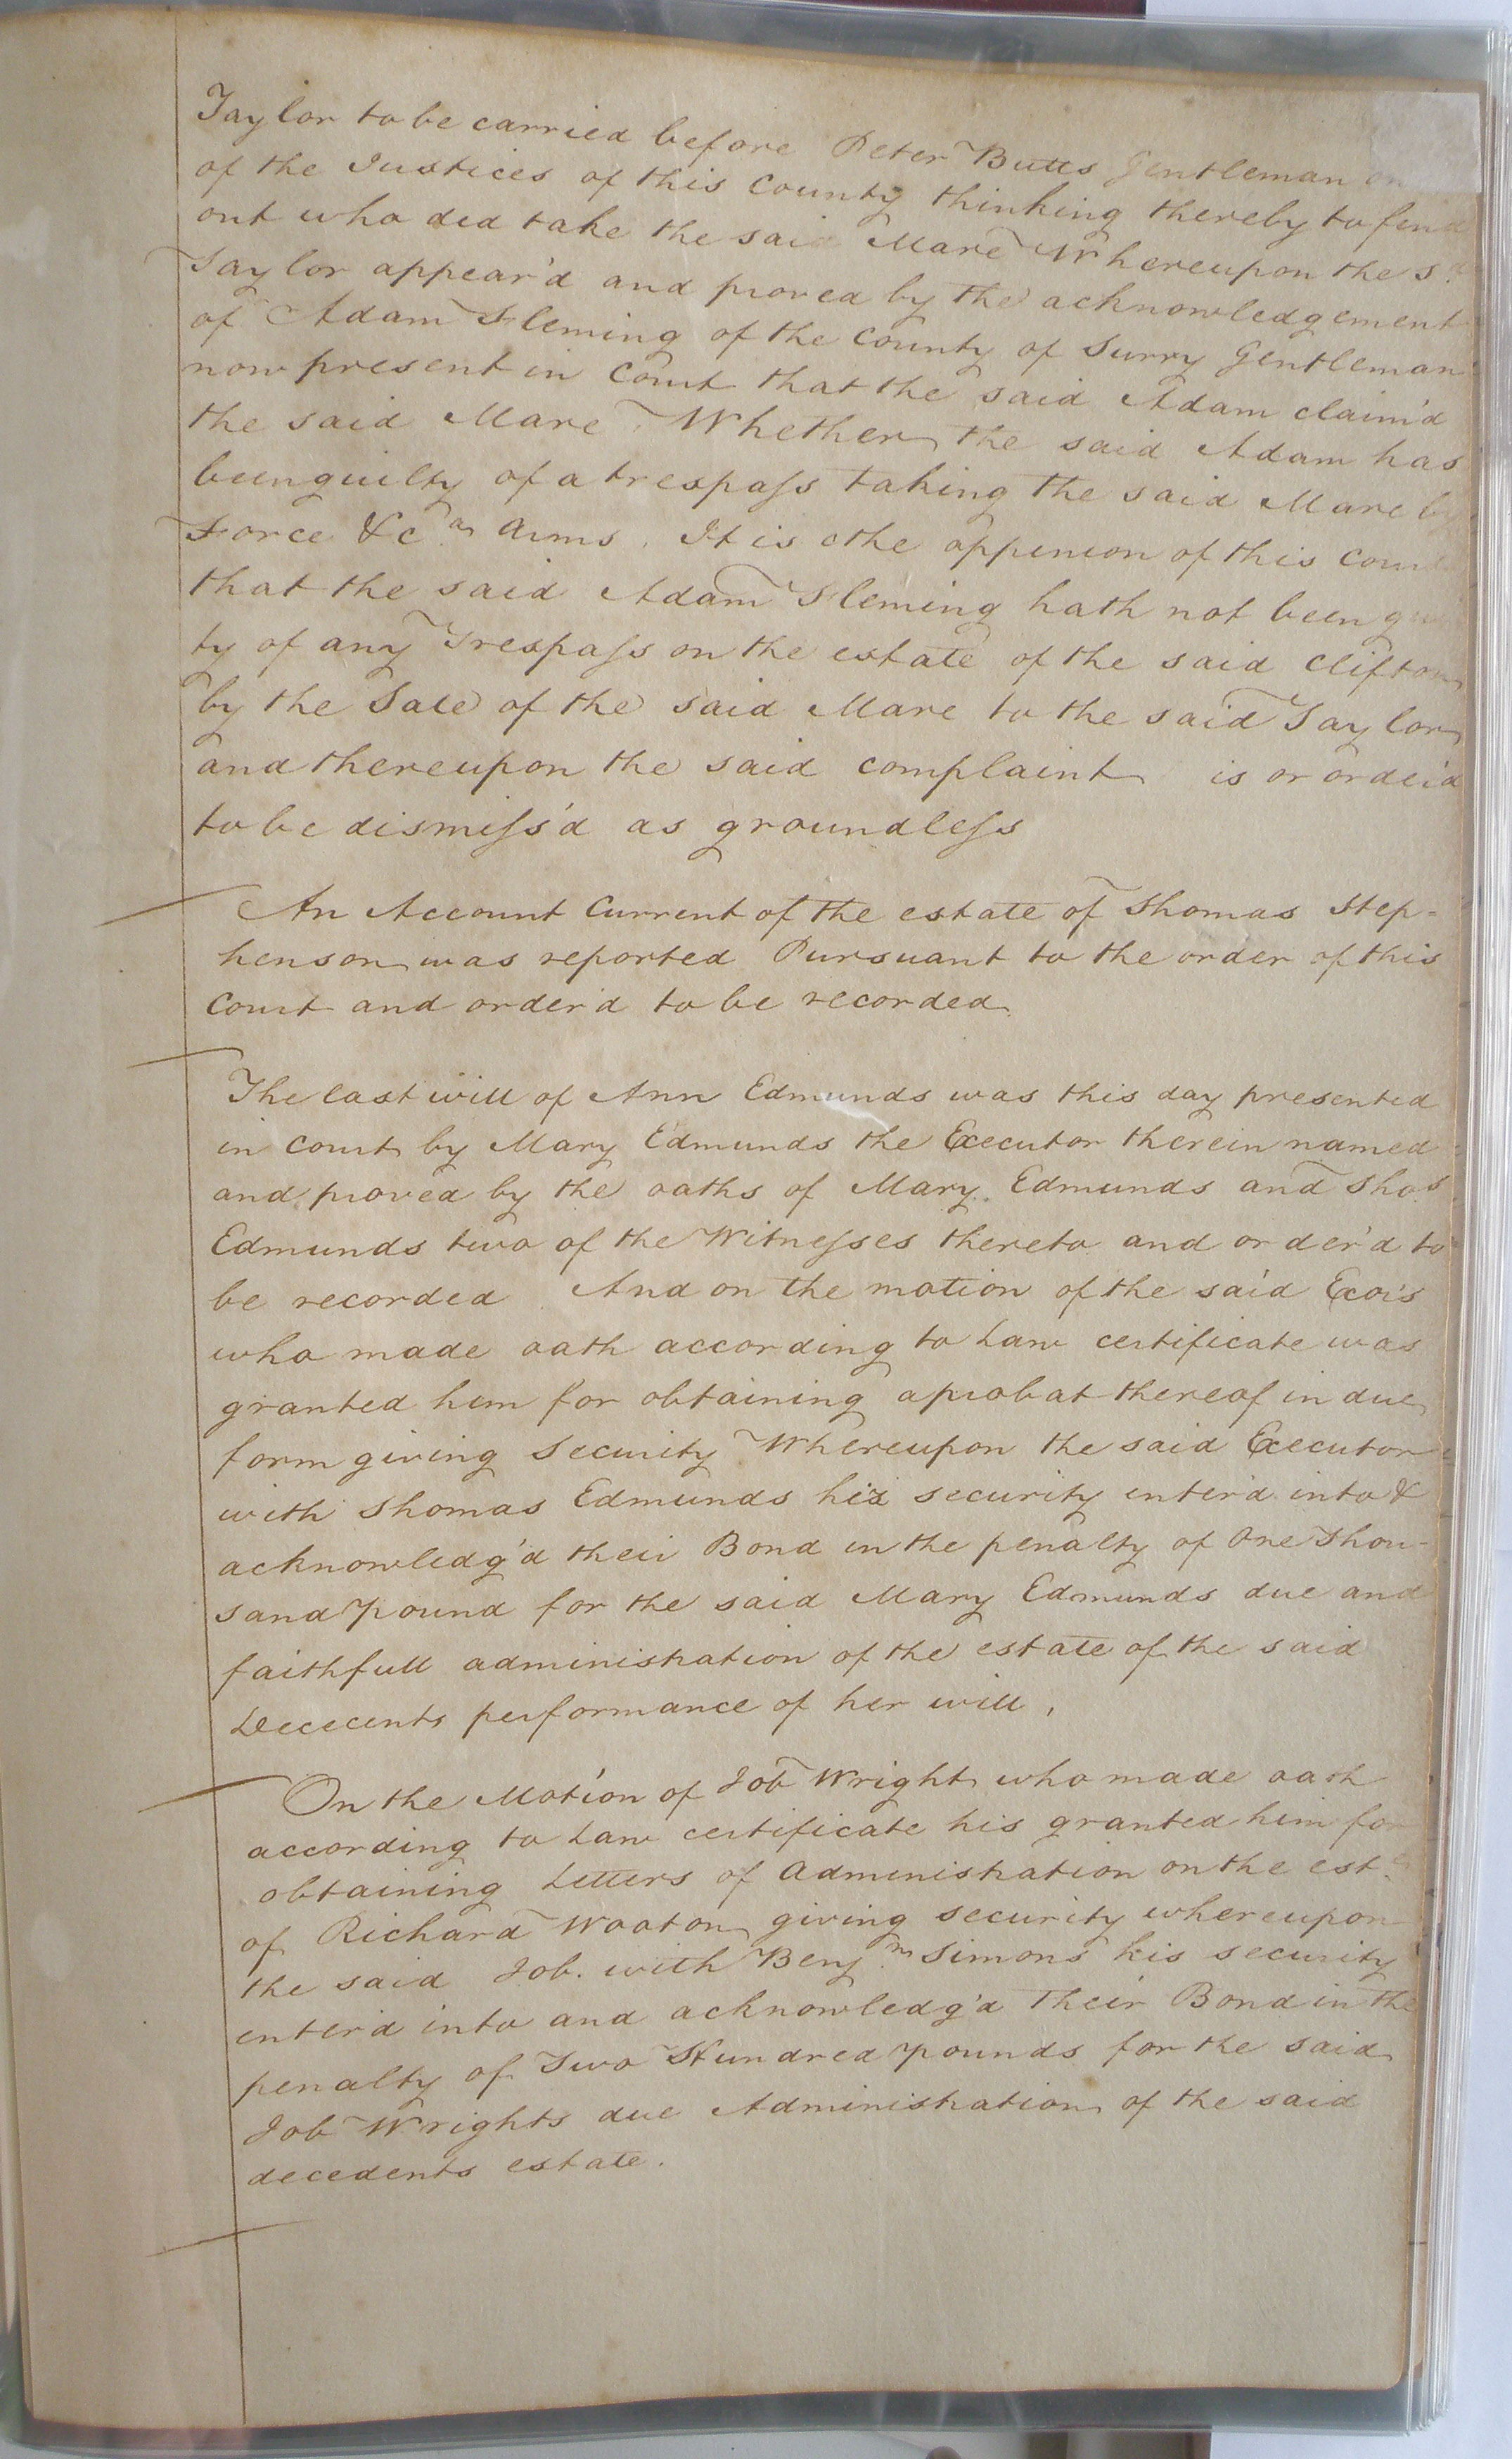 Taylor to be carried before Peter Butts Gentleman
of the Justices of this County thinking thereby to find
out who did take the said Mare Whereupon the sd
Taylor appear'd and proved by the acknowledgement
of Adam Fleming of the County of Surry Gentleman
now present in Court that the said Adam claim'd
the said Mare. Whether the said Adam has
been guilty of a trespass taking the said Mare by
Force &c as Arms. It is the oppinion of this Court
that the said Adam Fleming hath not been guil
ty of any Trespass on the estate of the said Clifton
by the Sale of the said Mare to the said Taylor
and thereupon the said complaint is or order'd
to be dismiss'd as groundless
An Account Current of the estate of Thomas Step-
henson was reported Pursuant to the order of this
Court and order'd to be recorded
The last will of Ann Edmunds was this day presented
in Court by Mary Edmunds the Executor therein named
and proved by the oaths of Mary Edmunds and Thos
Edmunds two of the Witnesses thereto and order'd to
be recorded And on the motion of the said Exors
who made oath according to Law certificate was
granted him for obtaining a probat thereof in due
form giving Security Whereupon the said Executor
with Thomas Edmunds his security enter'd into &
acknowledg'd their Bond in the penalty of One Thou-
sand pound for the said Mary Edmunds due and
faithfull administration of the estate of the said
Dececents performance of her will,
On the Motion of Job Wright who made oath
according to Law certificate his granted him for
obtaining Letters of Administration on the est.
of Richard Wooton giving security whereupon
the said Job. with Benjm Simons his security
enter'd into and acknowledg'd Their Bond in the
penalty of Two Hundred pounds for the said
Job Wrights due Administration of the said
decedents estate.